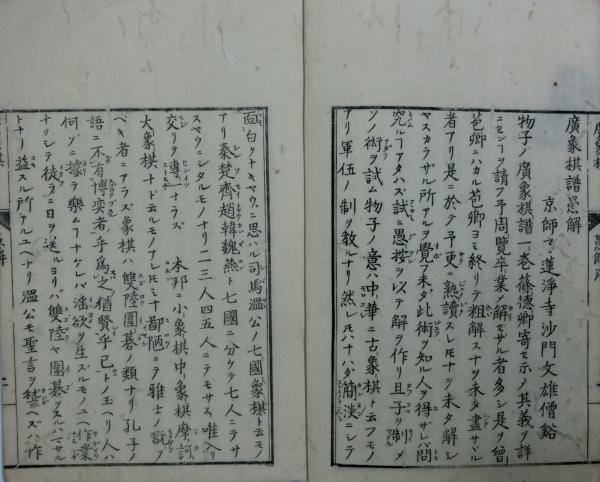 廣象棋譜愚解
京師マ蓮淨寺沙門文雄僧谿
物子ノ廣象棋譜一巻條德卿寄セ示ノ其義ヲ詳
ニセンヿヲ請フ予周覽卒業ノ解セザル者多シ是ヲ曾
芭卿ニハカル芭卿ヨミ終リテ粗解スナヲ未タ盡サヾル
者アリ是ニ於テ予更ニ熟讀スレ𪜈ナヲ未タ解シ
ヤスカラザル所アルヲ覺フ未ダ此術ヲ知ル人ヲ得サレバ問
究ルニアタハズ試ニ愚按ヲ以テ解ヲ作リ且子ヲ制メ
ソノ術ヲ試ム物子ノ意ハ中華ニ古象棋ト云フモノ
アリ軍伍ノ制ヲ教ルナリ然レ𪜈ハナハダ簡淡ニシテ
面白クナキヤウニ思ハル司馬溫公ノ七國象棋ト云モノ
アリ秦楚齊趙韓魏燕ト七國ニ分ケテ七人ニテサ
スヤウニシタルモノナリ一二三人四五人ニテモサス唯入
交リヲ專一トナラズ 本邦ニ小象棋中象棋摩訶
大象棋ナト云ルモノアレ𪜈ナヲ鄙陋ニテ雅士ノ翫ブ
ベキ者ニアラズ象棋ハ雙陸圍碁ノ類ナリ孔子ノ
語ニ不有博奕者乎爲之猶賢乎已トノ玉ヘリ人ハ
何ゾニ據テ樂ムヿナケレバ滛欲ヲ生スルモノユヘ作業
ナクシテ徒ラニ日ヲ送ルヨリハ雙陸ヤ圍碁ヲスルハマサル
トナリ益スル所アルユヘナリ溫公モ聖言ヲ ヘズハ作